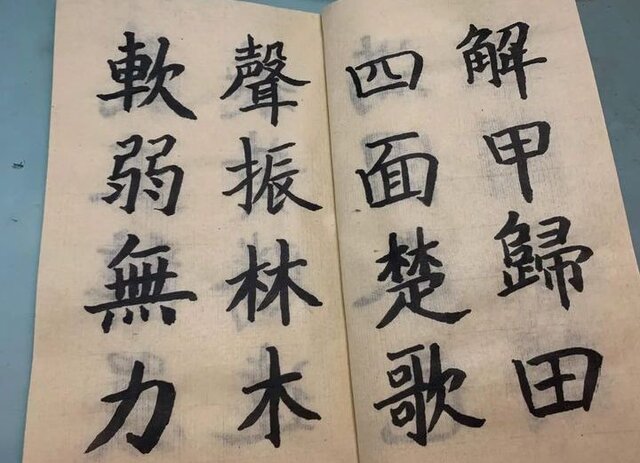 解甲歸田
四面楚歌
聲振林木
軟弱無力